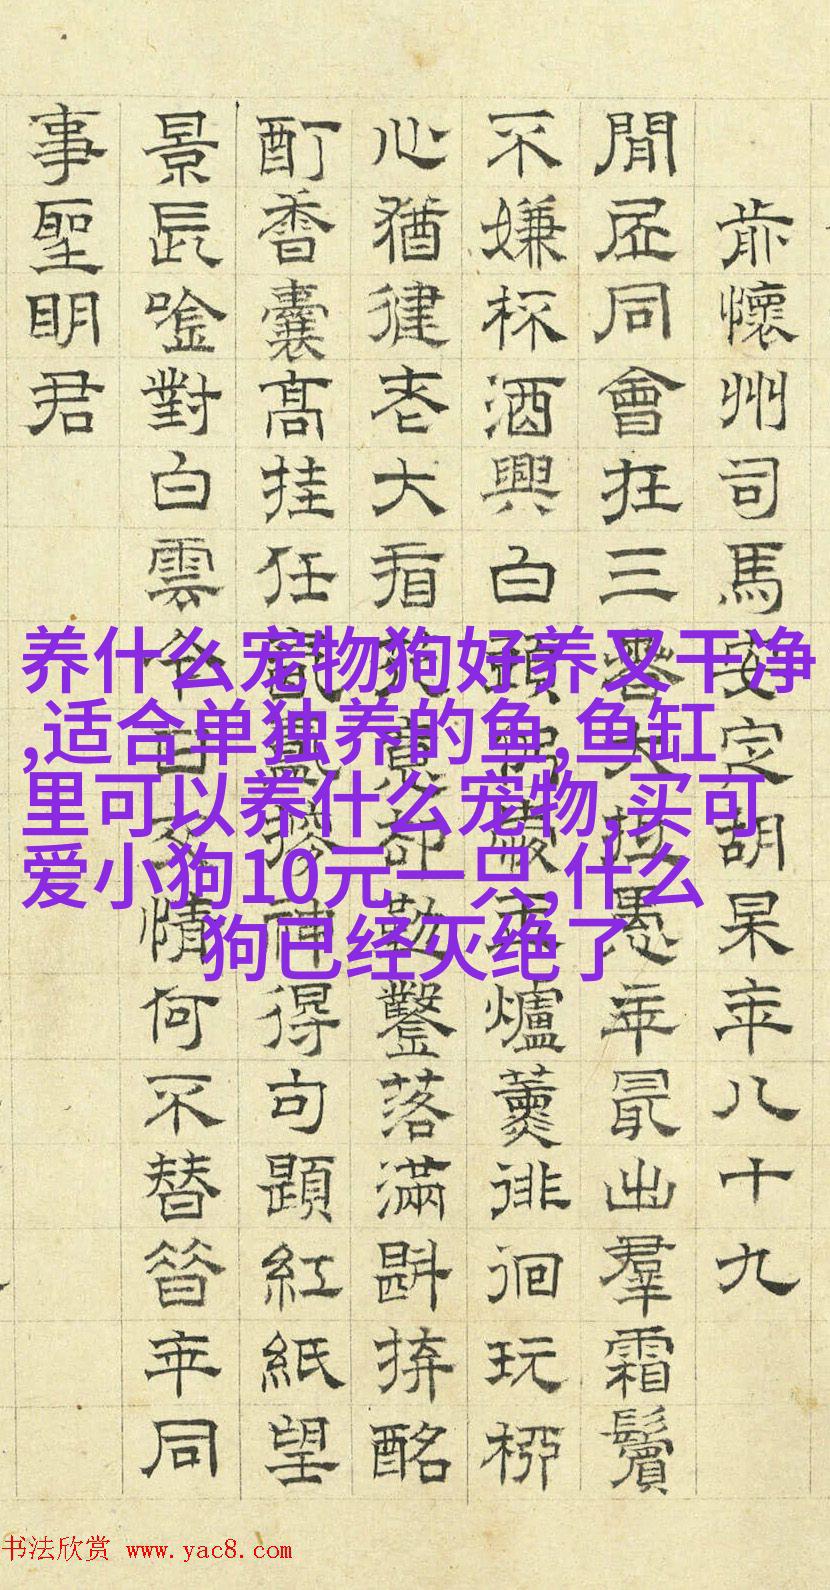 前懷州司馬安定胡杲年八十九
閒居同會在三春大抵愚年最出羣霜鬢
不嫌杯酒興白頭玉爐薰徘徊玩柳
心猶健老大看花意却勤鑿落滿斟拚酩
酊香囊高挂任氤氳神得句題紅紙望
景長唫對白雲今日交情何不替齊年同
事聖明君
养什么宠物狗好养又干净
,适合单独养的鱼,鱼缸
里可以养什么宠物,买可
爱小狗10元一只,什么
狗已经灭绝了
书法欣赏 www.yac8.com